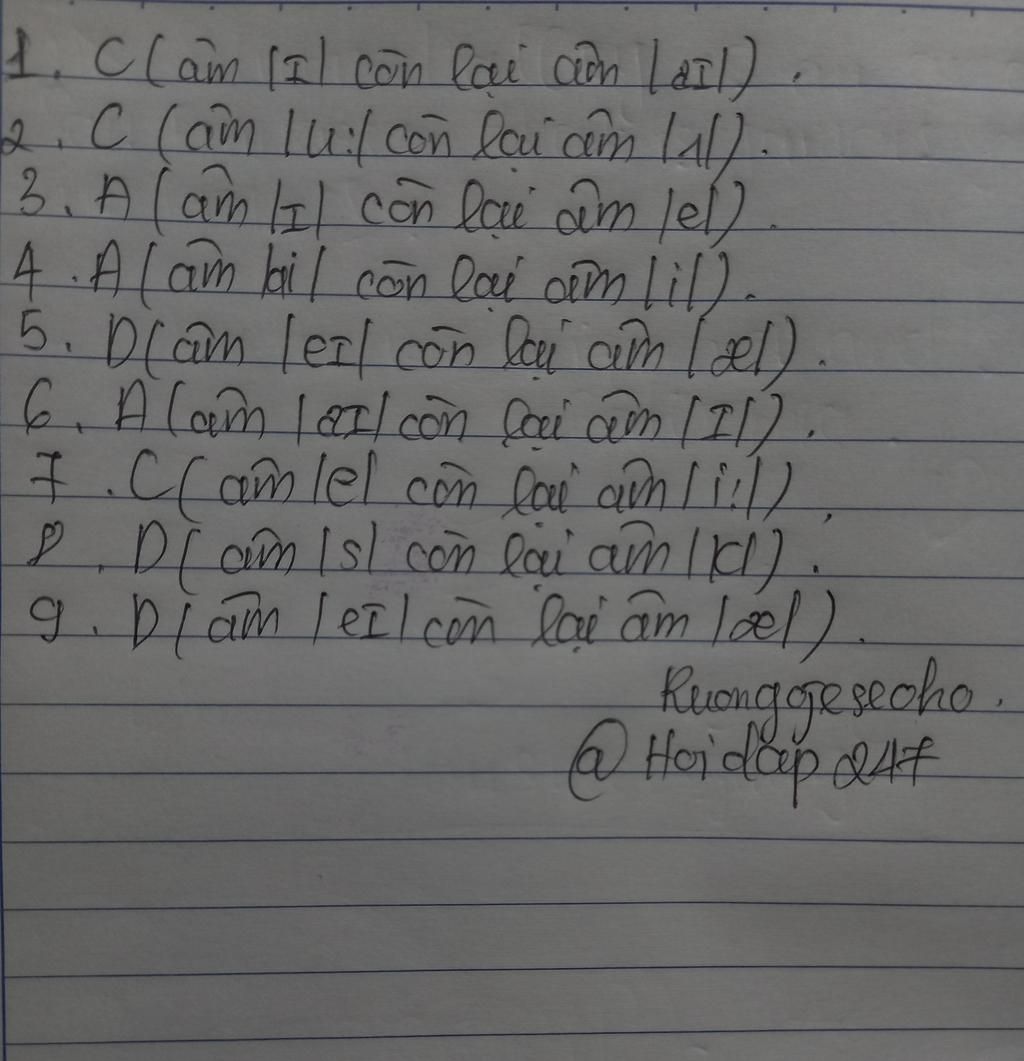 1. C (âm /ɪ/ còn lại âm /aɪ/).
2. C (âm /u:/ còn lại âm /ʌ/).
3. A (âm /ɪ/ còn lại âm /e/).
4. A (âm /ai/ còn lại âm /i/).
5. D (âm /eɪ/ còn lại âm /æ/).
6. A (âm /aɪ/ còn lại âm /ɪ/).
7. C (âm /e/ còn lại âm /i:/).
8. D (âm /s/ còn lại âm /k/).
9. D (âm /eɪ/ còn lại âm /æ/).
@Hoidap247